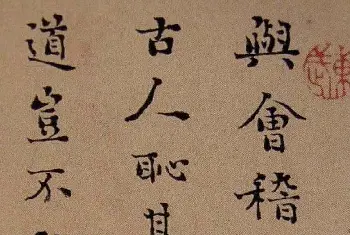 與會稽
古人恥其
道豈不